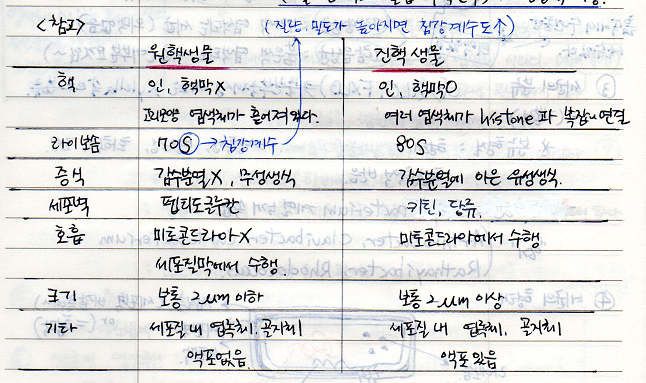 <참고> (질량, 밀도가 높아지면 침강계수도↑)
원핵생물 진핵생물
핵 인, 핵막X 인, 핵막O
고리모양 염색체가 흩어져있다. 여러 염색체가 histone과 복잡히 연결
라이보솜 70S →침강계수 80S
증식 감수분열X, 무성생식 감수분열에 의한 유성생식.
세포벽 펩티도글루칸 키틴, 당류.
호흡 미토콘드리아X 미토콘드리아에서 수행
세포질막에서 수행.
크기 보통 2um 이하 보통 2um 이상
기타 세포질 내 엽록체, 골지체 세포질 내 엽록체, 골지체
액포없음. 액포있음